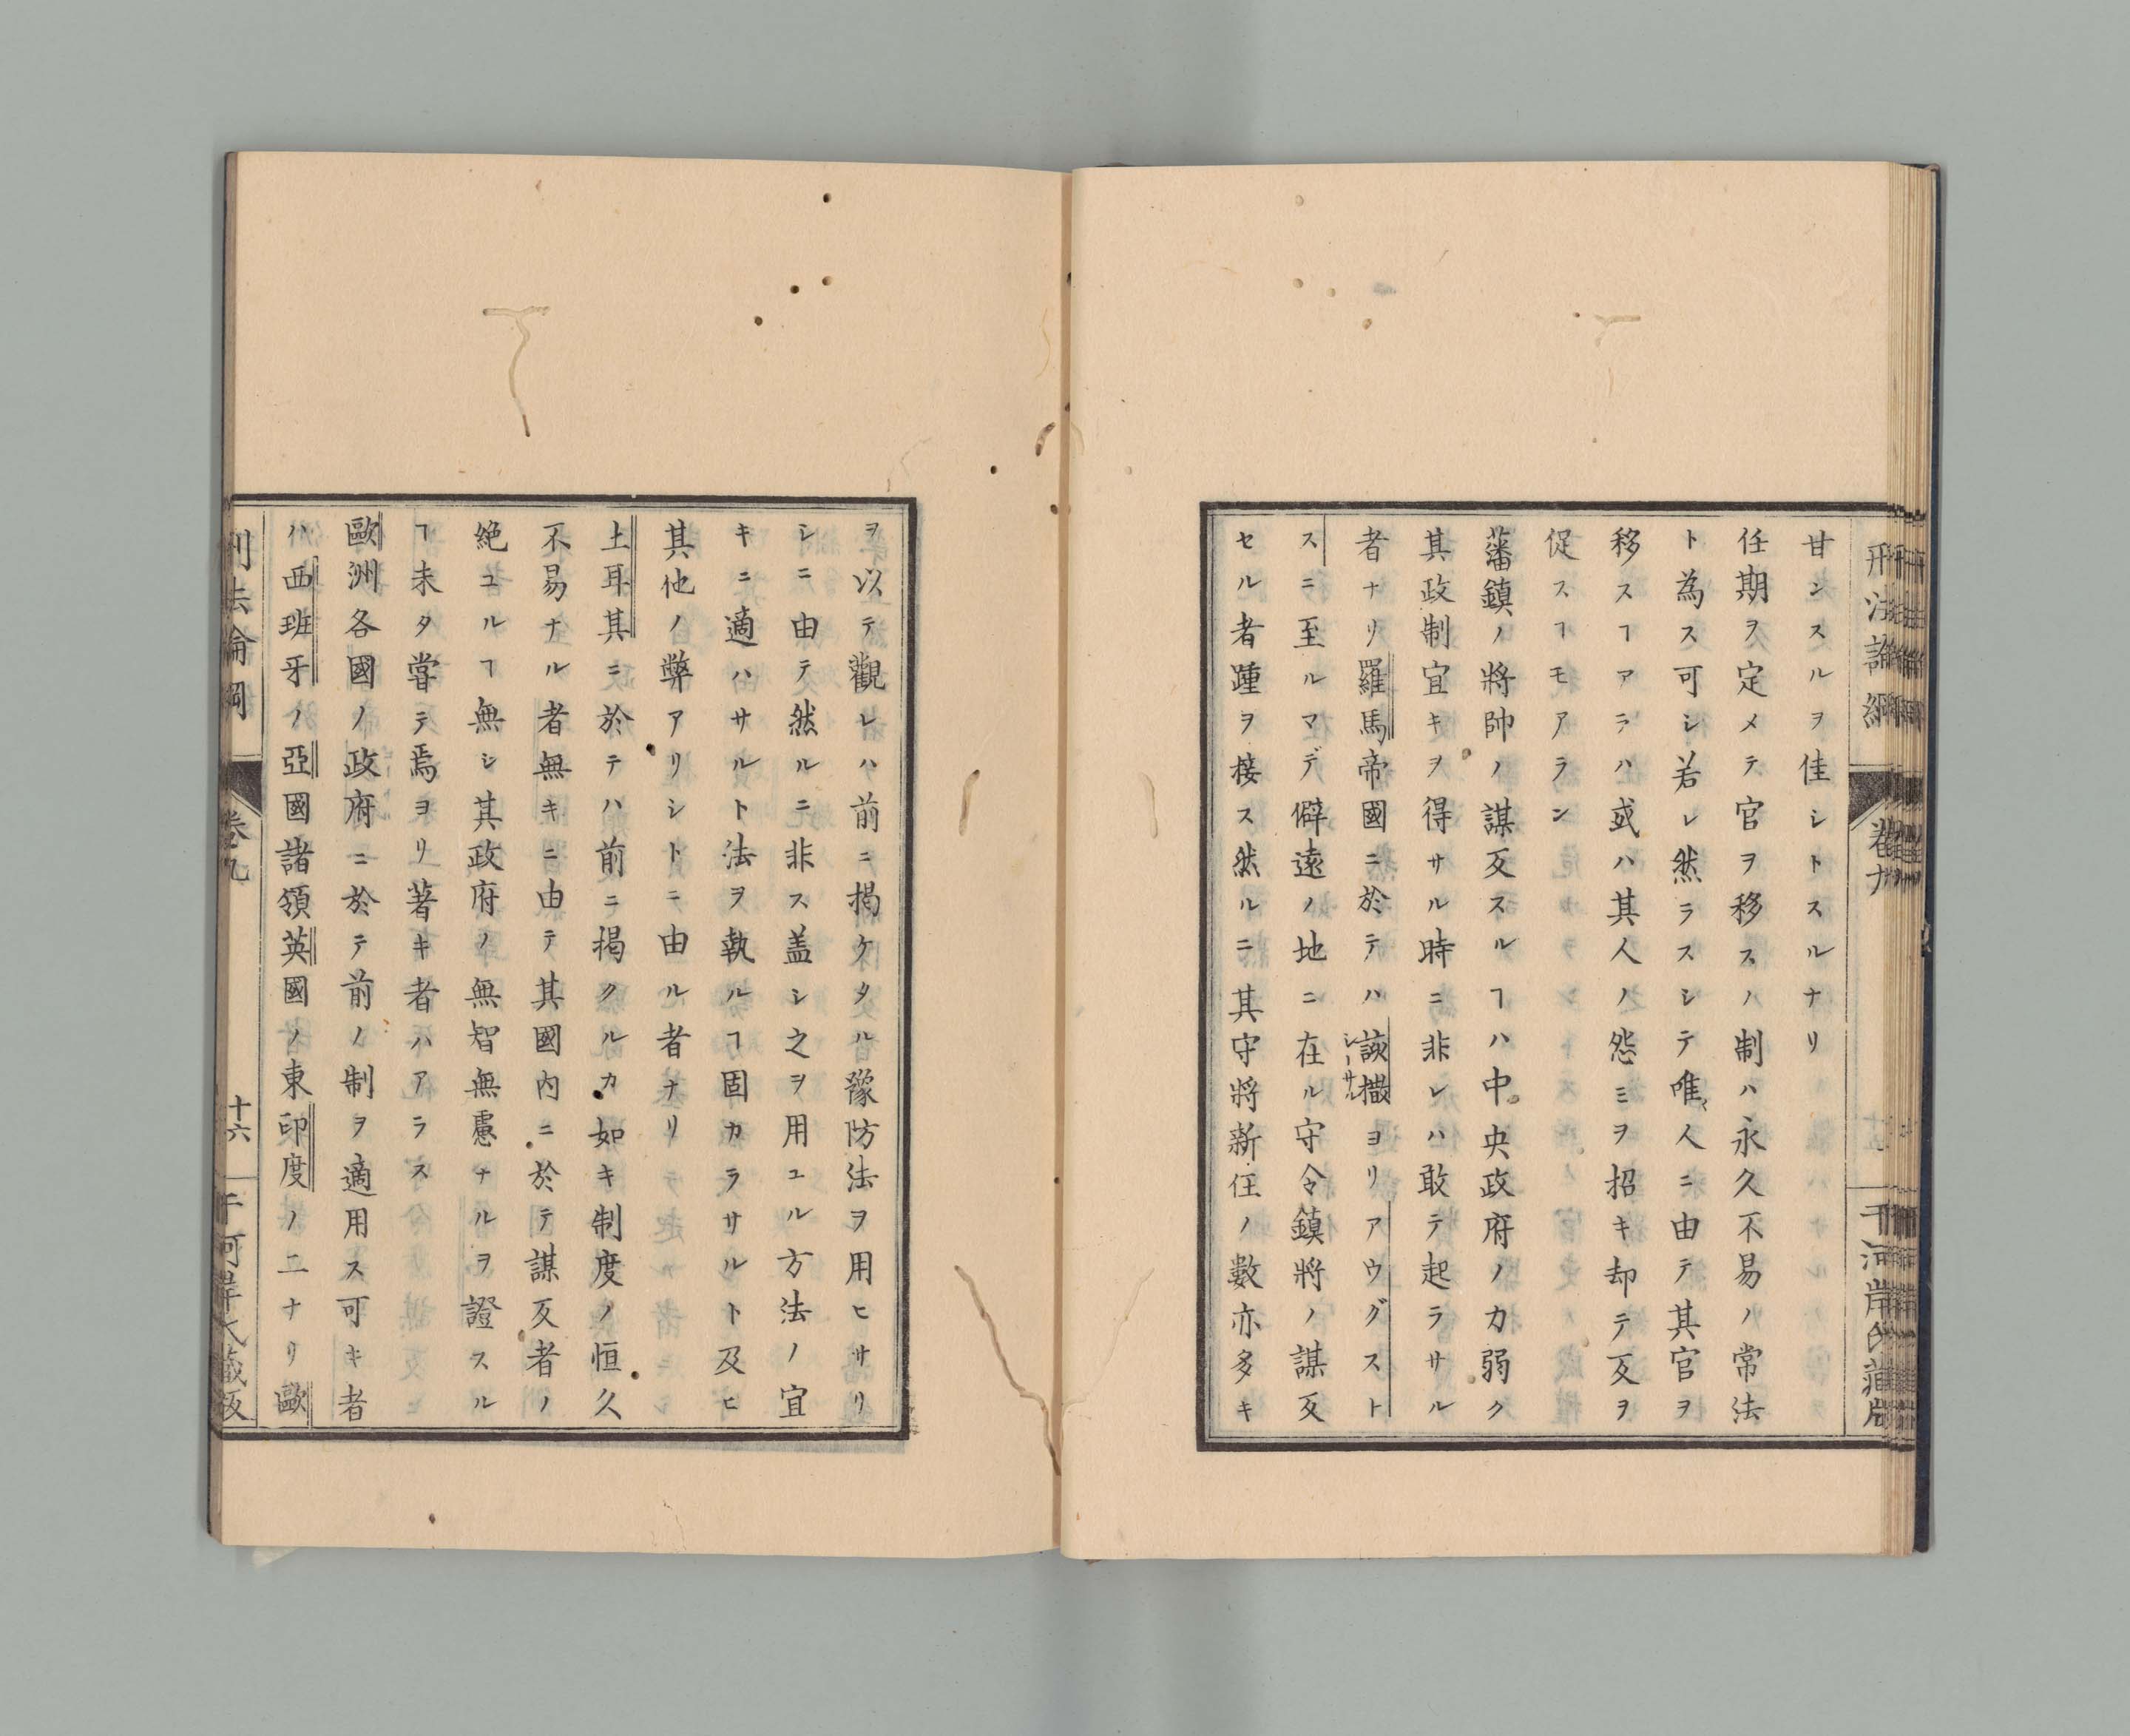 甘シスルヲ佳シトスルナリ
任期ヲ定メテ官ヲ移スノ制ハ永久不易ノ常法
ト為ス可シ若シ然ラスシテ唯々人ニ由テ其官ヲ
移スヿアラハ或ハ其人ノ怨ミヲ招キ却テ叛ヲ
促スヿモアラン
藩鎮ノ將帥ノ謀反スルヿハ中央政府ノ力弱ク
其政制宜キヲ得サル時ニ非レハ敢テ起ラサル
者ナリ羅馬帝國ニ於テハ該撒ヨリアウグスト
シーサル
スニ至ルマデ僻遠ノ地ニ在ル守令鎮將ノ謀反
セル者踵ヲ接ス然ルニ其守將新任ノ數亦多キ
ヲ以テ觀レハ前ニ揭ケタル豫防法ヲ用ヒサリ
シニ由テ然ルニ非ス盖シ之ヲ用ユル方法ノ宜
キニ適ハサルト法ヲ執ルヿ固カラサルト及ヒ
其他ノ弊アリシトニ由ル者ナリ
土耳其ニ於テハ前ニ揭クルカ如キ制度ノ恒久
不易ナル者無キニ由テ其國内ニ於テ謀反者ノ
絶ユルヿ無シ其政府ノ無智無慮ナルヲ證スル
ヿ未タ嘗テ焉ヨリ著キ者ハアラス
歐洲各國ノ政府ニ於テ前ノ制ヲ適用ス可キ者
ハ西班牙ノ亞國諸領英國ノ東印度ノ二ナリ歐
刑法論綱
卷九
十六